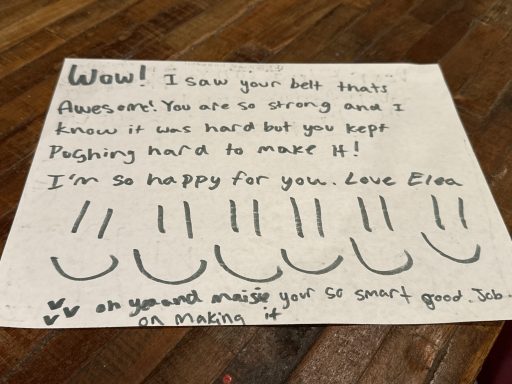 Wow! I saw your belt thats
Awesome! You are so strong and I
know it was hard but you kept
Poshing hard to make it!
I'm so happy for you. Love Elea
oh and maisie your so smart good. Job.
on making it